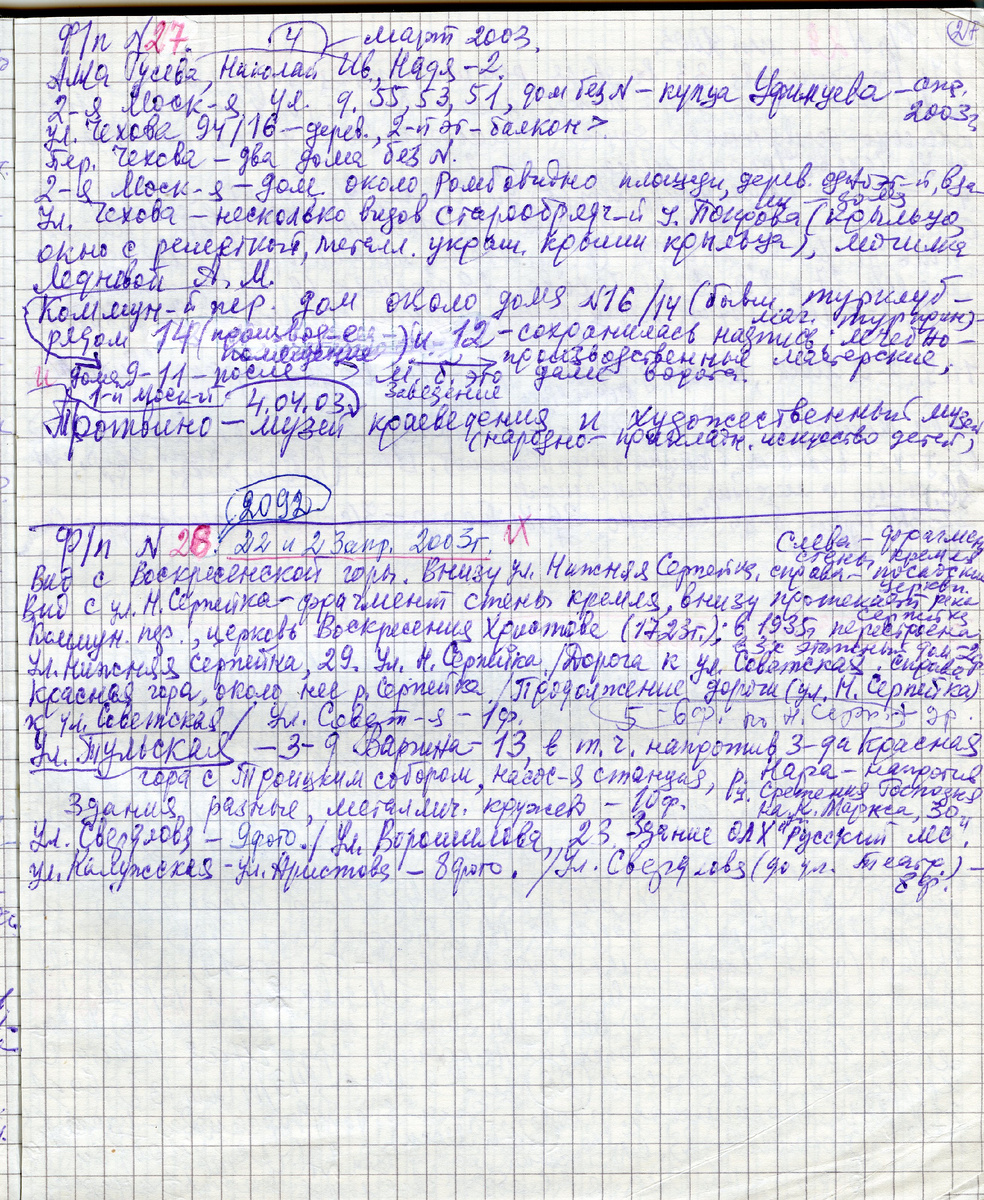 27
Ф/п №27. 4 март 2003.
Алла Гусева, Николай Ив., Надя-2.
2-я Моск-я ул. д. 55, 53, 51, дом без № - купца Удинцева - апр. 2003г.
ул. Чехова 94/16 - дерев., 2-й эт - балкон
Пер. Чехова - два дома без №.
2-я Моск-я - дом около ромбовидно площади, дерев.
Ул. Чехова - несколько видов старообрядч-й ц. Покрова (крыльцо,
окно с решеткой, металл. украш. крыши крыльца), могилка
Ледневой А. М.
Коммун-й пер. дом около дома №16/14 (бывш. турклуб -
маг. "Турин")
рядом 14 (производ-ое помещение) и 12 - сохранилась надпись: лечебно-
производственные мастерские,
и дома 9-11 - после М.б. это дали ворота.
1-й Моск-й заведение
4.04.03.
Протвино - музей краеведения и художественный музей
(народно-прикладн. искусство детей)
2092
Ф/п №28. 22 и 23 апр. 2003г.
Слева - фрагмент стены кремля
Вид с Воскресенской горы. Внизу ул. Нижняя Серпейка, справа - посадские церкви.
Вид с ул. Н. Серпейка - фрагмент стены кремля, внизу протекает река Серпейка
Коммун. пер., церковь Воскресения Христова (1723г.); в 1935г. перестроена
в 3х этажный дом
Ул. Нижняя Серпейка, 29. Ул. Н. Серпейка / Дорога к ул. Советская. справа
Красная гора, около нее р. Серпейка / Продолжение дороги (ул. Н. Серпейка)
к ул. Советская / Ул. Совет-я - 1ф. 5-6ф. по Н. Серп
Ул. Тульская - 3-д Варгина - 13, в т.ч. напротив з-да Красная
гора с Троицким собором, насос-я станция, р. Нара - напротив
ц. Сретения Господня
Здания, разные, металлич. кружево - 10ф. на К. Маркса, 30.
Ул. Свердлова - 9фото. / Ул. Ворошилова, 23 Здание ОАХ "Русский лес"
ул. Калужская - ул. Аристова - 8фото. / Ул. Свердлова (до ул. Театр.) -
8ф.